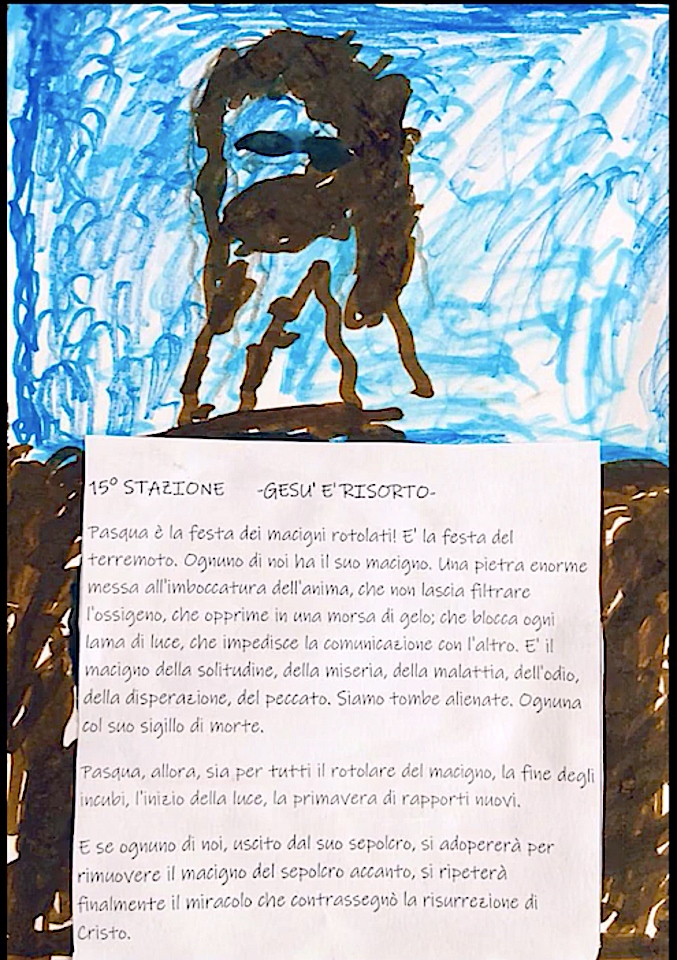 15° STAZIONE -GESU' E' RISORTO-
Pasqua è la festa dei macigni rotolati! E' la festa del
terremoto. Ognuno di noi ha il suo macigno. Una pietra enorme
messa all'imboccatura dell'anima, che non lascia filtrare
l'ossigeno, che opprime in una morsa di gelo; che blocca ogni
lama di luce, che impedisce la comunicazione con l'altro. E' il
macigno della solitudine, della miseria, della malattia, dell'odio,
della disperazione, del peccato. Siamo tombe alienate. Ognuna
col suo sigillo di morte.
Pasqua, allora, sia per tutti il rotolare del macigno, la fine degli
incubi, l'inizio della luce, la primavera di rapporti nuovi.
E se ognuno di noi, uscito dal suo sepolcro, si adopererà per
rimuovere il macigno del sepolcro accanto, si ripeterà
finalmente il miracolo che contrassegnò la risurrezione di
Cristo.